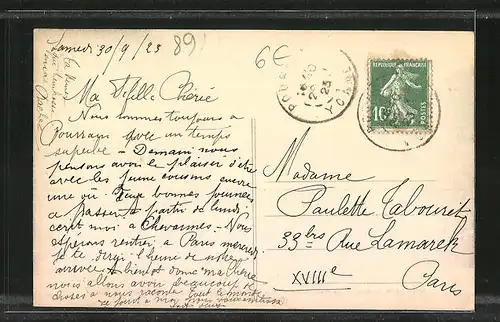 Samedi 30/9/23
891
6€
Ma Bfille Chérie
Nous sommes toujours à
Pourrain avec un temps
superbe - Demain nous
pensons avoir le plaisir d'être
avec les jeunes cousins encore
une où deux bonnes journées
à passer. A partir de lundi
à Chevannes - Nous
espérons rentrer à Paris mercredi
je te dirai l'heure de notre
arrivée A bientôt donc ma Chérie
nous allons avoir beaucoup de
choses à nous raconter tout le monde
RÉPUBLIQUE FRANÇAISE
10c
POSTES
Madame
Paulette Tabouret
33bis Rue Lamarck
XVIIIe
Paris